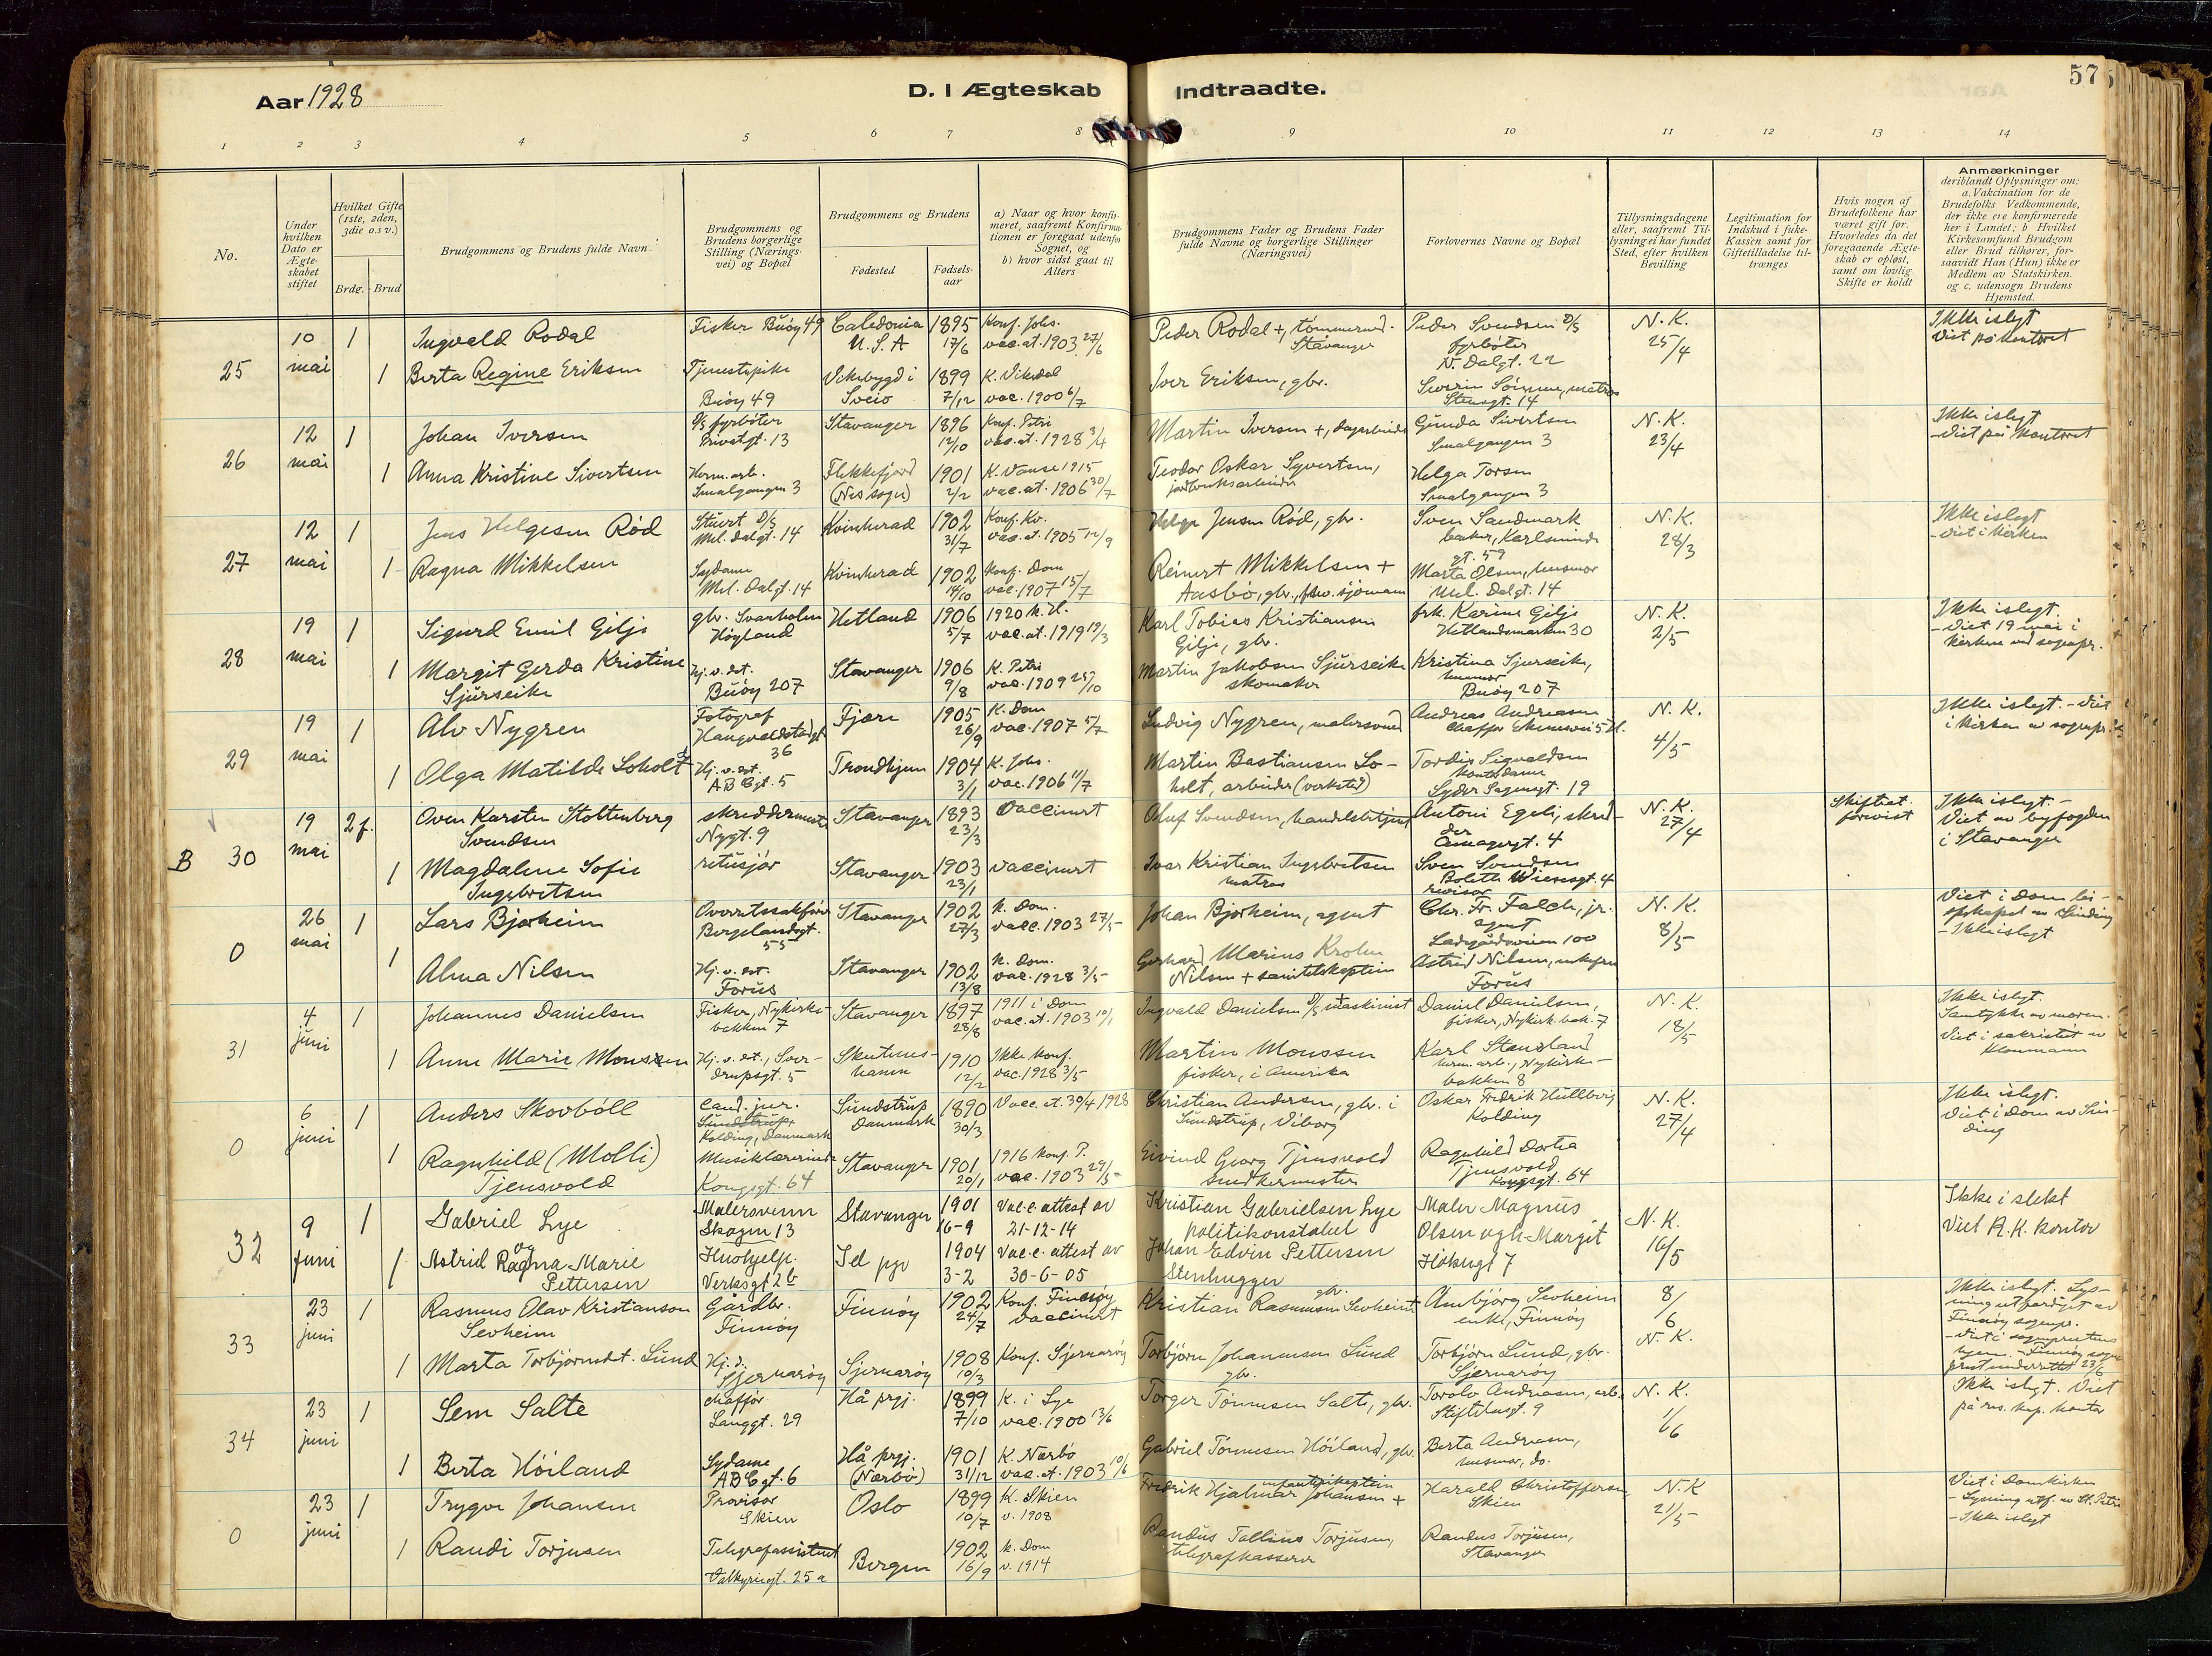 Aar 1928
D. I Ægteskab Indtraadte.
57
1 2 3 4 5 6 7 8 9 10 11 12 13 14
No.
Under hvilken Dato er Ægteskabet stiftet
Hvilket Gifte (1ste, 2den, 3die o.s v.)
Brdg. Brud
Brudgommens og Brudens fulde Navn
Brudgommens og Brudens borgerlige Stilling (Næringsvei) og Bopæl
Brudgommens og Brudens
Fødested
Fødselsaar
a) Naar og hvor konfirmeret, saafremt Konfirmationen er foregaaet udenfor Sognet, og
b) hvor sidst gaat til Alters
Brudgommens Fader og Brudens Fader fulde Navne og borgerlige Stillinger (Næringsvei)
Forlovernes Navne og Bopæl
Tillysningsdagene eller, saafremt Tillysning ei har fundet Sted, efter hvilken Bevilling
Legitimation for Indskud i Enke-Kassen samt for Giftetilladelse tiltrænges
Hvis nogen af Brudefolkene har været gift før. Hvorledes da det foregaaende Ægteskab er opløst, samt om lovlig Skifte er holdt
Anmærkninger
deriblandt Oplysninger om: a. Vakcination for de Brudefolks Vedkommende, der ikke ere konfirmerede her i Landet; b Hvilket Kirkesamfund Brudgom eller Brud tilhører, forsaavidt Han (Hun) ikke er Medlem av Statskirken. og c. udensogn Brudens Hjemsted.
25 10 mai 1 Ingvald Rodal Fisker Buøy 49 Caledonia U.S.A 1895 17/6 Konf. Johs. vac. at. 1903 27/6 Peder Rodal +, tømmermd. Stavanger Peder Svendsen D/S fyrbøter N. Dalgt. 22 N.K. 25/4 Ikke i slegt Viet på kontoret
1 Berta Regine Eriksen Tjenestepike Buøy 49 Vikebygd i Sveio 1899 7/12 K. Vikedal vac. 1900 6/7 Iver Eriksen, gbr. Severin Sømme, matros Stensgt. 14
26 12 mai 1 Johan Iversen D/S fyrbøter Privatgt. 13 Stavanger 1896 12/10 Konf. Petri vac. at. 1928 3/4 Martin Iversen +, dagarbeider Gunda Sivertsen Smalgangen 3 N.K. 23/4 Ikke i slegt - Viet på kontoret
1 Anna Kristine Sivertsen Herm. arb. Smalgangen 3 Flekkefjord (Nes sogn) 1901 2/2 K. Vanse 1915 vac. at. 1906 30/7 Teodor Oskar Syvertsen, jordbruksarbeider Helga Torsen Smalgangen 3
27 12 mai 1 Jens Helgesen Rød Stuert D/S Mel. Dalgt. 14 Kvinherad 1902 31/7 Konf. Kv. vac. at. 1905 12/9 Helge Jensen Rød, gbr. Sven Sandmark baker, Karlsminde gt. 59 N.K. 28/3 Ikke i slegt - viet i kirken
1 Ragna Mikkelsen Sydame Mel. Dalgt. 14 Kvinherad 1902 14/10 Konf. Dom vac. 1907 15/7 Reinert Mikkelsen + Aasbø, gbr., fhv. sjømann Marta Olsen, husmor Mel. Dalgt. 14
28 19 mai 1 Sigurd Emil Gilje gbr. Svanholmen Høgland Hetland 1906 5/7 1920 K. H. vac. at. 1919 19/3 Karl Tobias Kristiansen Gilje, gbr. frk. Karine Gilje Hetlandsmarken 30 N.K. 2/5 Ikke i slegt. - Viet 19 mai i kirken ved sognepr.
1 Margit Gerda Kristine Sjurseike Hj. v. det. Buøy 207 Stavanger 1906 9/8 K. Petri vac. 1909 25/10 Martin Jakobsen Sjurseike skomaker Kristina Sjurseike, husmor Buøy 207
29 19 mai 1 Alv Nygren Fotograf Haugvaldstadgt 36 Fjære 1905 26/9 K. Dom vac. 1907 5/7 Ludvig Nygren, malersvend Andreas Andreasen N.K. 4/5 Ikke i slegt. - Viet i kirken av sognepr.
1 Olga Matilde Loholt Hj. v. det. ABCgt. 5 Trondhjem 1904 3/1 K. Johs. vac. 1906 11/7 Martin Bastiansen Loholt, arbeider (verksted) Tordis Sigvaldsen kontordame
B 30 19 mai 2 f. Oven Karsten Stoltenberg Svendsen skreddermester Nygt. 9 Stavanger 1893 23/3 Vaccinert Oluf Svendsen, handelsbetjent Antoni Egeli, skredder Camagergt. 4 N.K. 27/4 Skiftet. forevist Ikke i slegt. - Viet av byfogden i Stavanger
1 Magdalene Sofie Ingebretsen retusjør Stavanger 1903 23/1 vaccinert Ivar Kristian Ingebretsen matros Sven Svendsen Bolette Wiesesgt. 4 revisor
0 26 mai 1 Lars Bjørheim Overretssakfører Bergelandsgt. 55 Stavanger 1902 27/3 K. Dom. vacc. 1903 27/5 Johan Bjørheim, agent Chr. Fr. Falch, jr. agent Ladegårdsveien 100 N.K. 8/5 Viet i Dom av Sinding - Ikke i slegt
1 Alma Nilsen Hj. v. det. Forus Stavanger 1902 13/8 K. Dom. vac. 1928 3/5 Gerhard Marius Krohn Nilsen + sanitetskaptein Astrid Nilsen, enkefru Forus
31 4 juni 1 Johannes Danielsen Fisker, Nykirkebakken 7 Stavanger 1897 28/8 1911 i Dom vac. at. 1903 10/1 Ingvald Danielsen D/S maskinist Daniel Danielsen, fisker, Nykirk. bak. 7 N.K. 18/5 Ikke i slegt. Samtykke av moren. Viet i sakristiet av Klonmann
1 Anne Marie Monssen Hj. v. det., Sverdrupsgt. 5 Skudeneshavn 1910 12/2 Ikke konf. vac. 1928 3/5 Martin Monssen fisker, i Amerika Karl Stensland herm. arb., Nykirkebakken 8
0 6 juni 1 Anders Skovbøll Cand. jur. Sundstrup Kolding, Danmark Sundstrup Danmark 1890 30/3 Vacc. at. 30/4 1928 Christian Andersen, gbr. i Sundstrup, Viborg Oskar Fredrik Hullberg Kolding N.K. 27/4 Ikke i slegt. Viet i Dom av Sinding
1 Ragnhild (Molli) Tjensvold Musiklærerinde Kongsgt. 64 Stavanger 1901 20/1 1916 Konf. P. vac. 1903 29/5 Eivind Georg Tjensvold snedkermester Ragnhild Dortea Tjensvold Kongsgt. 64
32 9 juni 1 Gabriel Lye Malersvenn Skagen 13 Stavanger 1901 16-9 Vacc. attest av 21-12-14 Kristian Gabrielsen Lye politikonstabel Maler Magnus Olsen og h. Margit Håkugt 7 N.K. 16/5 Ikke i slekt Viet R.K. kontor
1 Astrid Ragna Marie Pettersen Hushjelp. Verksgt 2b Sel pgr 1904 3-2 Vacc. attest av 30-6-05 Johan Edvin Pettersen Stenhugger
33 23 juni 1 Rasmus Olav Kristianson Sevheim Gårdbr. Finnøy Finnøy 1902 24/7 Konf. Finnøy Vaccinert Kristian Rasmussen Sevheim + gbr. Ambjørg Sevheim enke, Finnøy 8/6 N.K. Ikke i slegt. Lysning utferdiget av Finnøy sognepr. - Viet i sogneprestens hjem. - Finnøy sogneprest underrettet 23/6
1 Marta Torbjørnsdt. Lund Hj. d. Sjernarøy Sjernarøy 1908 10/3 Konf. Sjernarøy Torbjørn Johannesen Lund gbr. Torbjørn Lund, gbr. Sjernarøy
34 23 juni 1 Sem Salte chaffør Langgt. 29 Hå prgj. 1899 7/10 K. i Lye vac. 1900 13/6 Torger Tønnesen Salte, gbr. Torolv Andreasen, arb. Stiftelsesgt. 9 N.K. 1/6 Ikke i slegt. Viet på res. kap. kontor
1 Berta Høiland Sydame ABCgt. 6 Hå prgj. (Nærbø) 1901 31/12 K. Nærbø vac. at. 1903 10/6 Gabriel Tønnesen Høiland, gbr. Berta Andreasen, husmor, do.
0 23 juni 1 Trygve Johansen Provisor Skien Oslo 1899 10/7 K. Skien v. 1908 Fredrik Hjalmar Johansen + infanterikaptein Harald Christoffersen Skien N.K 21/5 Viet i Domkirken - Lysning utf. av St. Petri - Ikke i slegt
1 Randi Torjusen Telegrafassistent Valkyriegt. 25 a Bergen 1902 16/9 K. Dom v. 1914 Randus Tallius Torjusen, telegrafkasserer Randus Torjusen, Stavanger